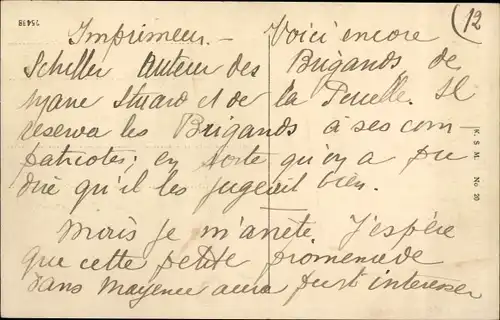 Imprimeur. — Voici encore
Schiller Auteur des Brigands de
Marie Stuard et de la Pucelle. Il
reserva les Brigands à ses com
patriotes; en sorte qu'on a pu
dire qu'il les jugeait bien.
Mais je m'arrête J'espère
que cette petite promenade
dans Mayence aura pu t'interesser
12
75438
K. S. M. No 20